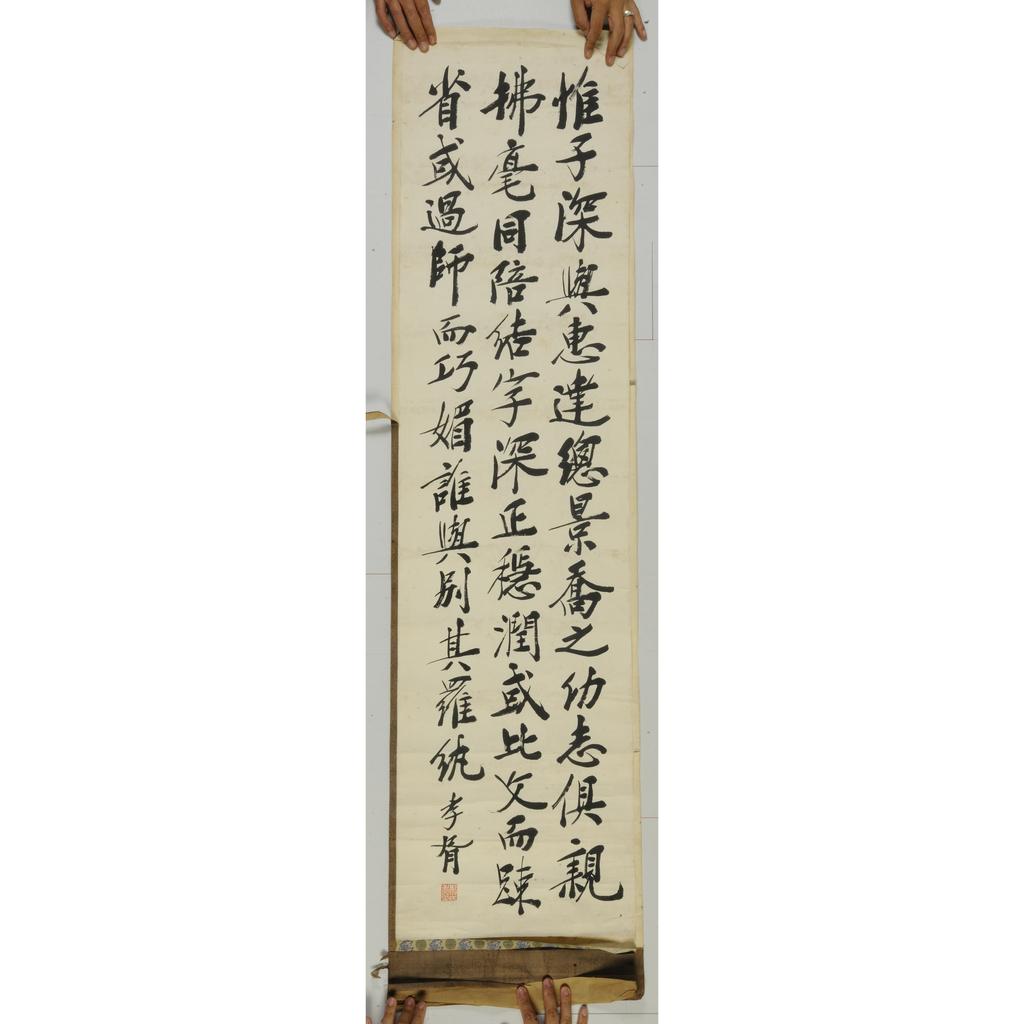 惟子深與惠達總景喬之幼志俱親
拂毫同陪結字深正穩潤或比父而踈
省或過師而巧媚誰與別其羅紈 孝胥